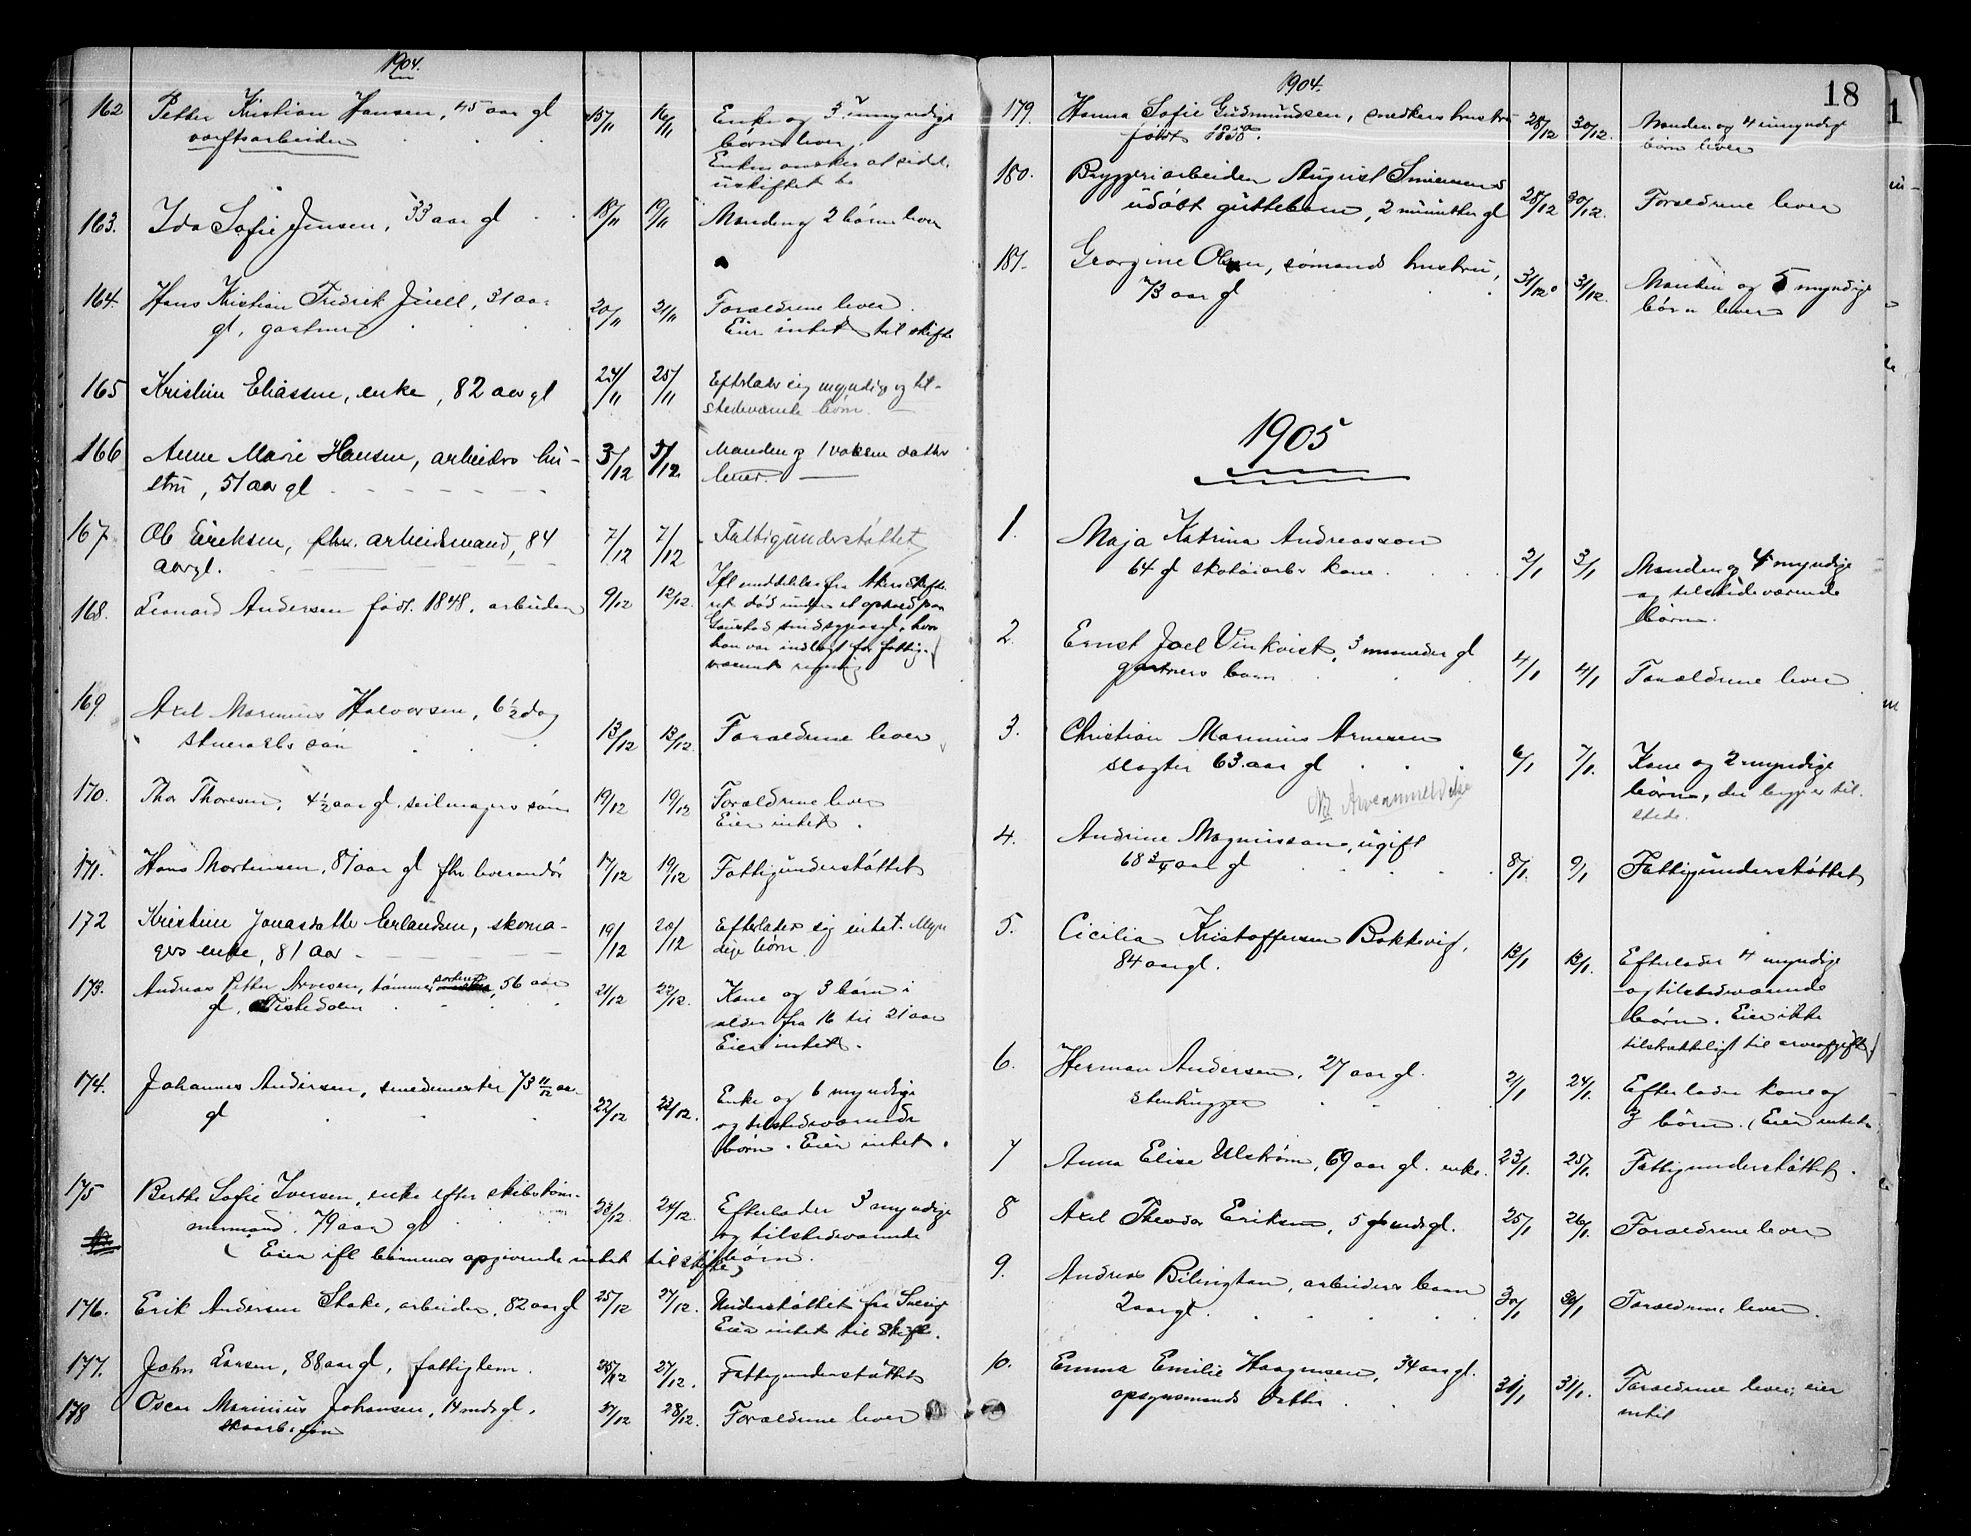 1904.
162 Petter Kristian Hansen, 45 aar gl 15/11 16/11 Enke og 3 umyndige
værftsarbeider børn lever.
Enken ønsker at sidde
uskiftet
163. Ida Sofie Jensen, 33 aar gl 18/11 19/11 Manden og 2 børn lever
164. Hans Kristian Fredrik Juell, 31 aar 20/11 21/11 Forældrene lever.
gl, gartner Eier intet til skifte
165 Kristine Eliassen, enke, 82 aar gl 24/11 25/11 Efterlader sig myndige og til-
stedeværende børn.
166 Anne Marie Hansen, arbeiders hu- 3/12 5/12. Manden og 1 voksen datter
stru, 51 aar gl lever.
167. Ole Eriksen, fhv. arbeidsmand, 84 7/12 7/12 Fattigunderstøttet
aar gl.
168. Leonard Andersen født 1848, arbeider 9/12 12/12. Ifl meddelelse fra Akers skifte-
ret død under et ophold paa
Gaustad sindssygeasyl, hvor
han var indlagt for fattig-
væsenets regning
169 Axel Marinius Halvorsen, 6 1/2 dag 13/12 13/12. Forældrene lever
stuerarbs søn
170. Thor Thoresen, 4 1/2 aar gl. seilmagers søn 19/12 19/12 Forældrene lever
Eier intet.
171. Hans Mortensen, 81 aar gl fhv leverandør 17/12 19/12 Fattigunderstøttet
172 Kristine Jonasdatter Erlandsen, skoma- 19/12 20/12 Efterlader sig intet. Myn
gers enke, 81 aar dige børn.
173. Andreas Petter Arvesen, tømmersorterer, 56 aar 21/12 22/12. Kone og 3 børn i
gl, Tistedalen alder fra 16 til 21 aar
Eier intet.
174. Johannes Andersen, smedemester 73 11/12 aar 22/12 23/12. Enke og 6 myndige
gl og tilstedeværende
børn. Eier intet.
175 Berthe Sofie Iversen, enke efter skibstøm- 23/12. 24/12. Efterlader 3 myndige
mermand. 79 aar gl og tilstedeværende
(Eier ifl børnenes opgivende intet til skifte) børn.
176. Erik Andersen Stake, arbeider, 82 aar gl 25/12 27/12. Understøttet fra Sverige
Eier intet til skifte.
177. John Larsen, 88 aar gl, fattiglem. 25/12 27/12. Fattigunderstøttet
178 Oscar Marinius Johansen, 14 mds gl, 27/12 28/12. Forældrene lever
skoarb. søn
18
1904.
179. Hanna Sofie Gudmundsen, snedkers hustru 28/12 30/12. Manden og 4 umyndige
født børn lever
180. Bryggeriarbeider August Simensens 28/12 30/12. Forældrene lever
udøbt guttebarn, 2 minutter gl
181. Georgine Olsen, sømands hustru, 31/12. 31/12. Manden og 5 myndige
73 aar gl børn lever
1905
1. Maja Katrina Andreasson 2/1 3/1 Manden og 4 myndige
64 gl skotøiarbs kone. og tilstedeværende
børn.
2. Ernst Joel Vinkvist, 3 maaneder gl 4/1 4/1 Forældrene lever
gartners barn
3. Christian Marinius Arnesen 6/1 7/1. Kone og 2 myndige
slagter 63 aar gl børn, der begge er til-
NB Arveanmeldelse stede.
4. Andrine Magnussone, ugift 8/1. 9/1 Fattigunderstøttet
68 3/4 aar gl
5. Cicilia Kristoffersen Bakkevig, 13/1 13/1. Efterlader 4 myndige
84 aar gl. og tilstedeværende
børn. Eier ikke
tilstrækkeligt til arveafgift
6. Herman Andersen, 27 aar gl. 2/1 24/1. Efterlader kone og
stenhugger 3 børn. (Eier intet
7 Anna Elise Ulstrøm, 69 aar gl. enke. 23/1. 25/1. Fattigunderstøttet.
8 Axel Theodor Eriksen, 5 mds gl. 25/1 26/1. Forældrene lever
9. Andreas Bilington, arbeiders barn 30/1 30/1 Forældrene lever.
2 aar gl.
10. Emma Emilie Haagensen, 34 aar gl. 31/1 31/1. Forældrene lever; eier
opsynsmands datter intet